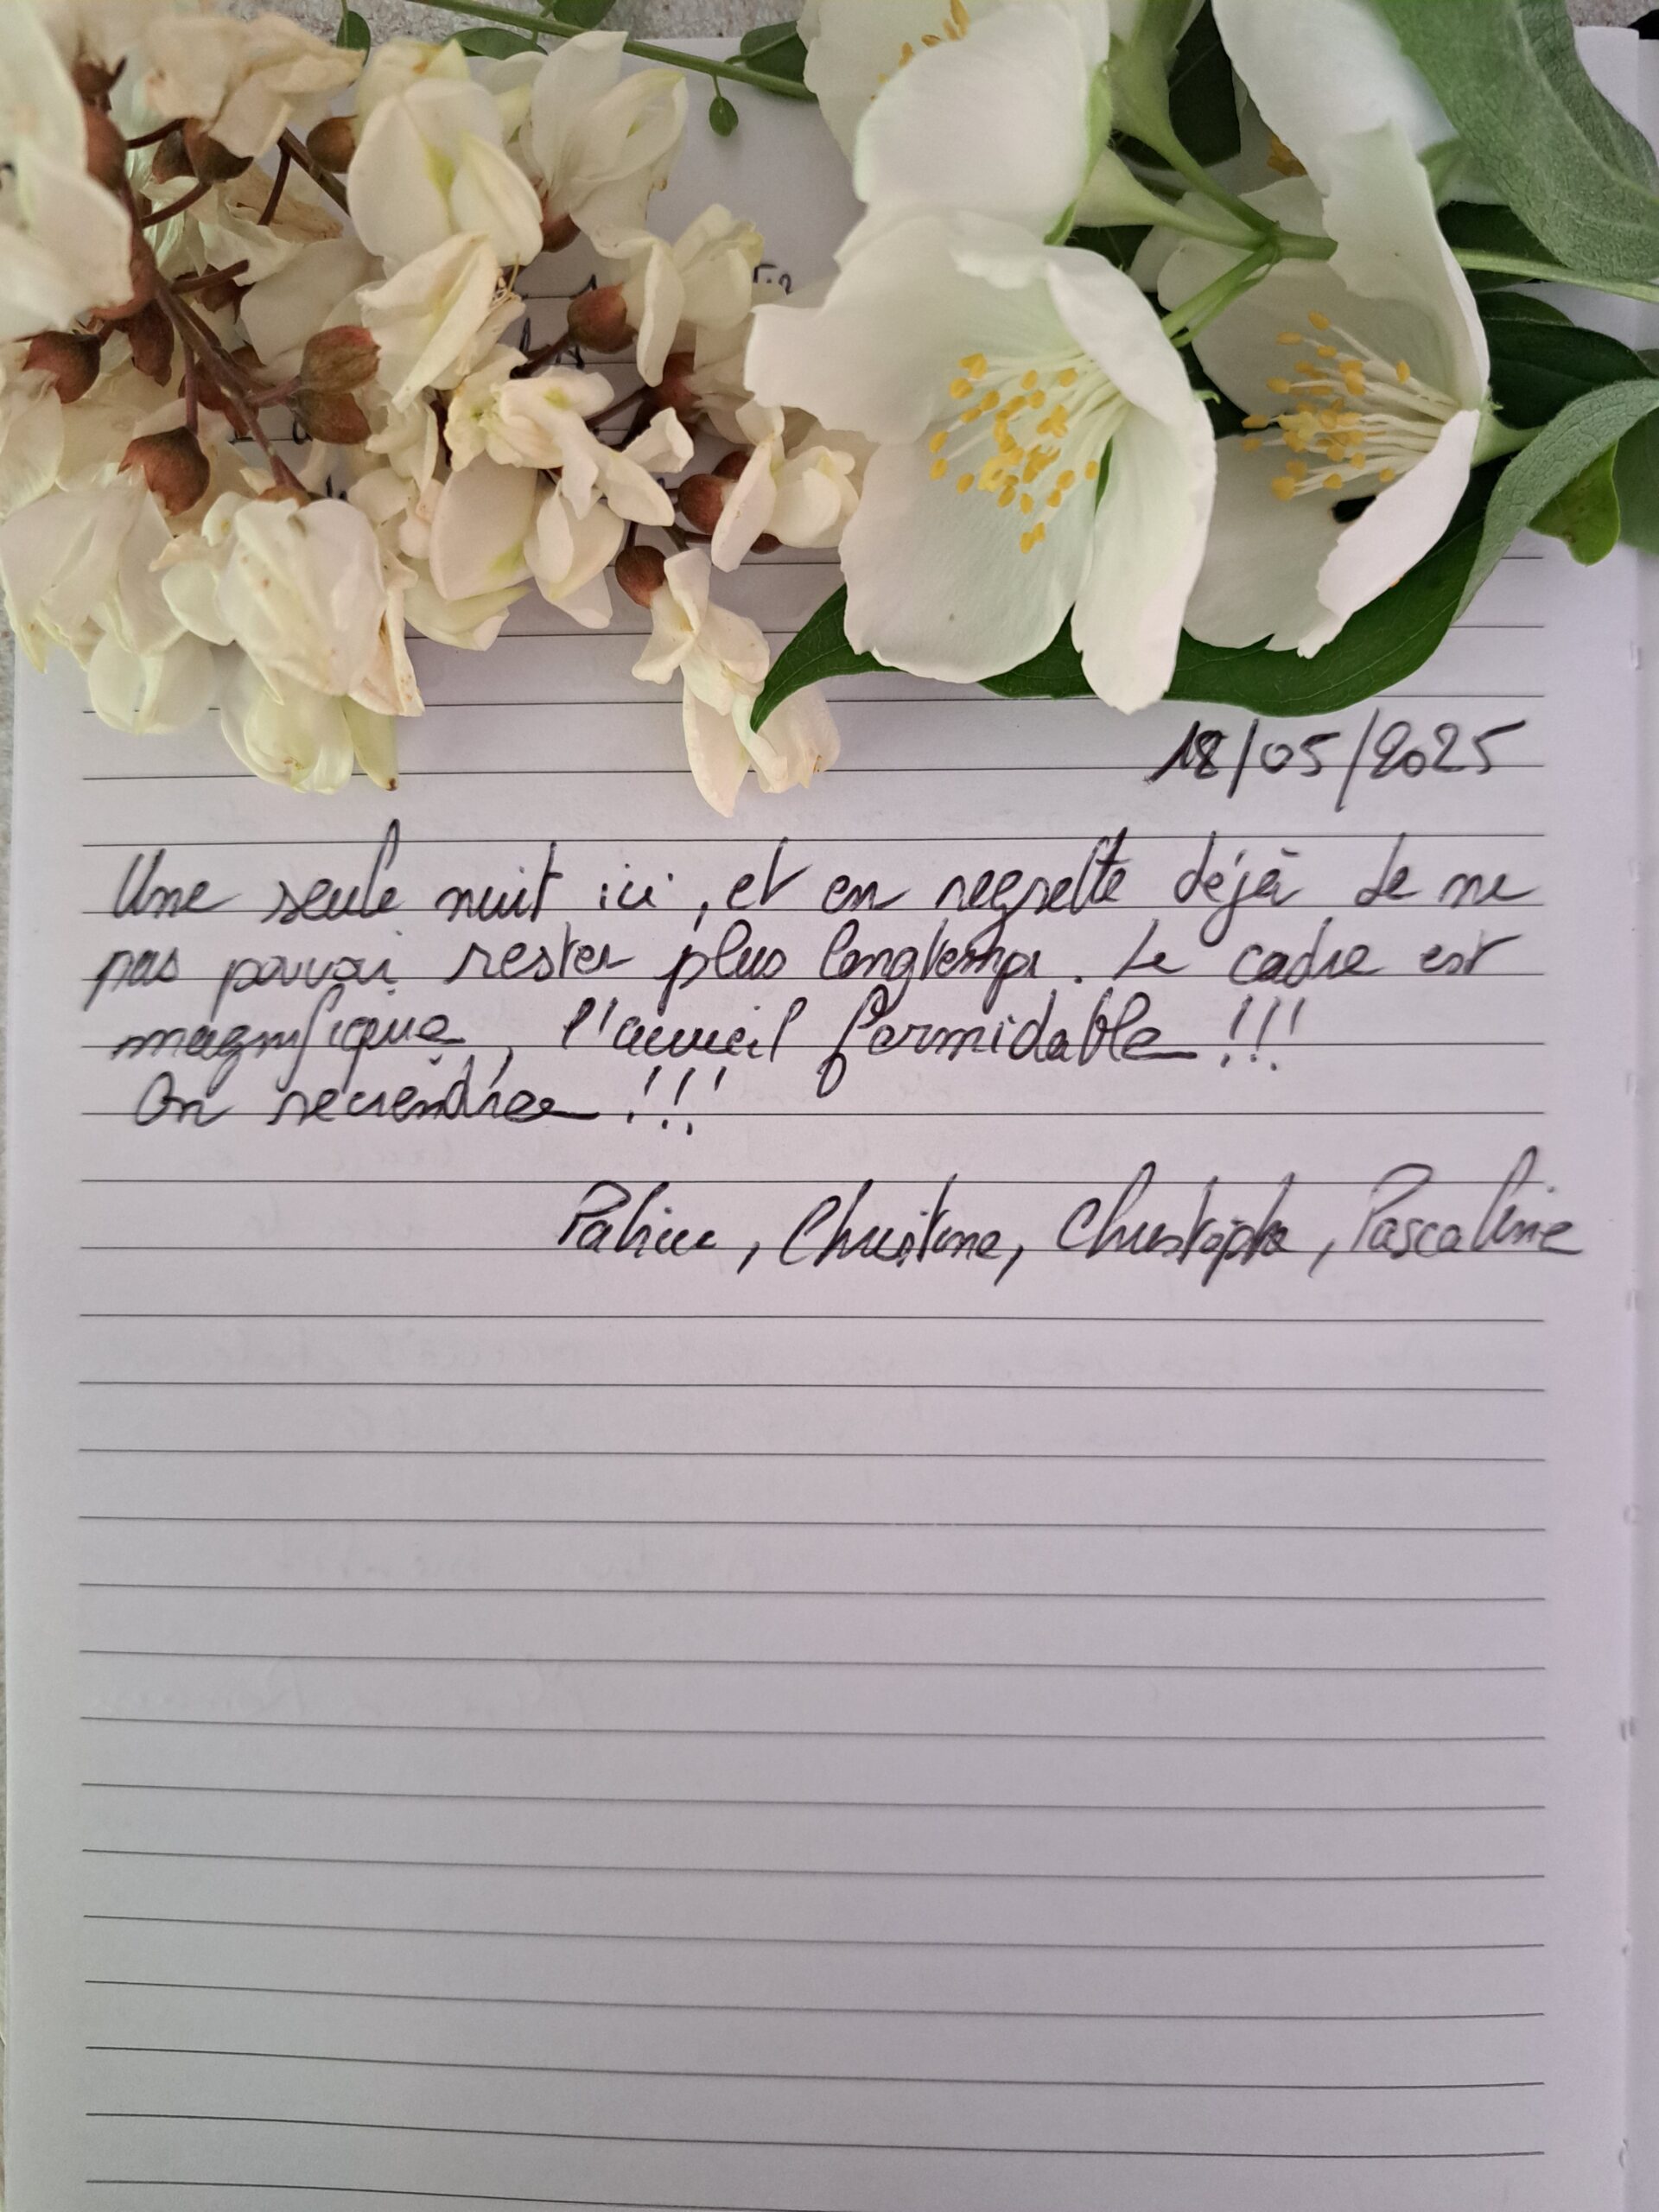 18/05/2025
Une seule nuit ici, et on regrette déjà de ne
pas pouvoir rester plus longtemps. Le cadre est
magnifique, l'accueil formidable !!!
On reviendra !!!
Patrice, Christine, Christophe, Pascaline